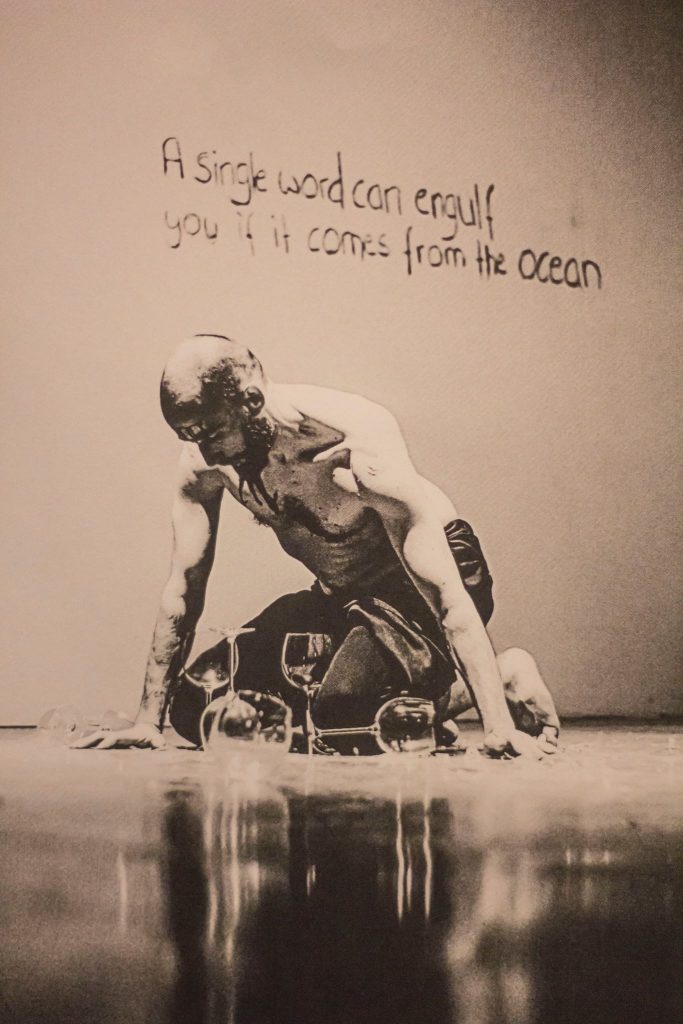 A single word can engulf
you if it comes from the ocean